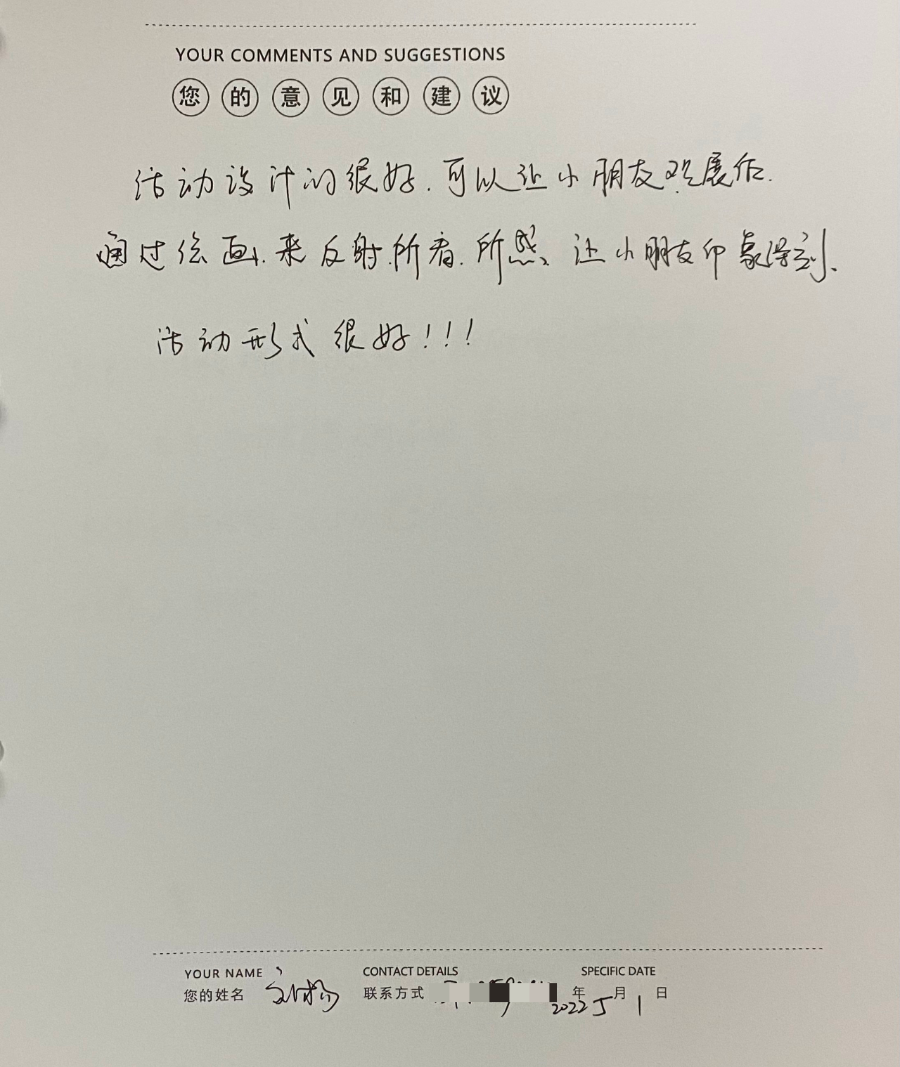 YOUR COMMENTS AND SUGGESTIONS
您的意见和建议
活动设计的很好.可以让小朋友观展后.
通过绘画.来反射.所看.所感、让小朋友印象深刻.
活动形式很好!!!
YOUR NAME CONTACT DETAILS SPECIFIC DATE
您的姓名 联系方式 2022年5月1日